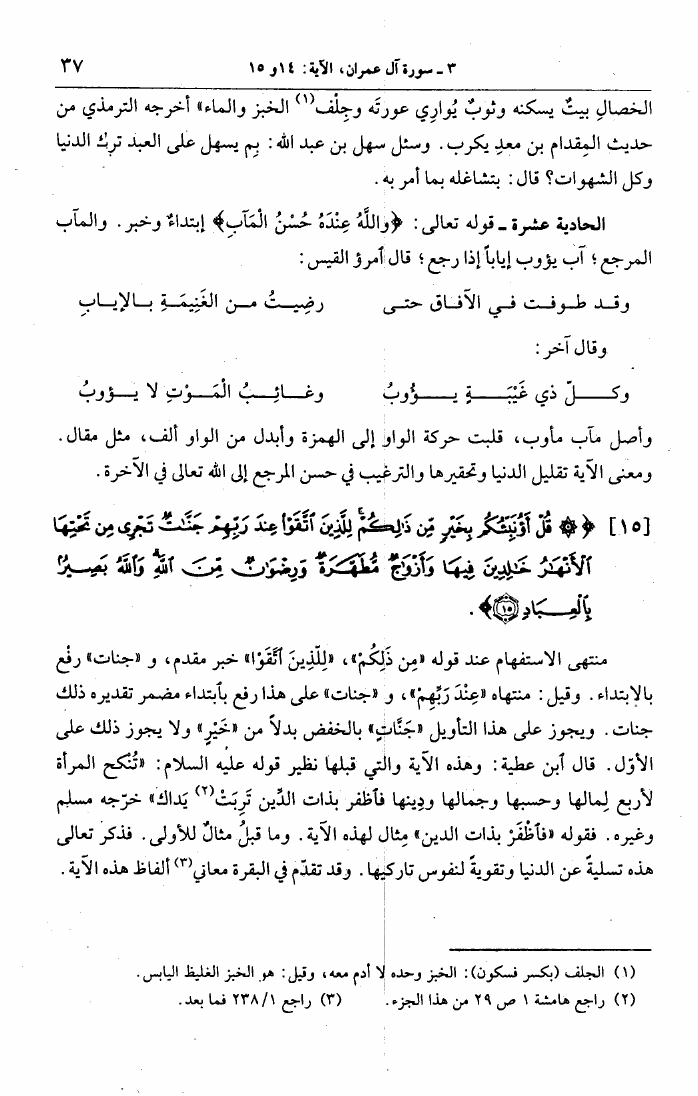 ٣ ـ سورة آل عمران، الآية: ١٤و ١٥
٣٧
الخصالِ بيتٌ يسكنه وثوبٌ يُوارِي عورتَه وجِلْف(١) الخبز والماء» أخرجه الترمذي من
حديث المِقدام بن معدِ يكرب. وسئل سهل بن عبد الله: بِم يسهل على العبد تركُ الدنيا
وكل الشهوات؟ قال: بتشاغله بما أمر به.
الحادية عشرة ـ قوله تعالى: ﴿وَاللَّهُ عِنْدَهُ حُسْنُ الْمَآبِ﴾ إبتداءٌ وخبر. والمآب
المرجع؛ آب يؤوب إياباً إذا رجع؛ قال ٱمرؤ القيس:
وقـد طـوفـت فـي الآفـاق حتـى رضِيـتُ مـن الغَنِيمَـةِ بـالإيـابِ
وقال آخر:
وكـــلّ ذي غَيْبَـــةٍ يـــؤُوبُ وغـائـبُ الْمَـوْتِ لا يـؤوبُ
وأصل مآب مأوب، قلبت حركة الواو إلى الهمزة وأبدل من الواو ألف، مثل مقال.
ومعنى الآية تقليل الدنيا وتحقيرها والترغيب في حسن المرجع إلى الله تعالى في الآخرة.
[١٥] ﴿۞ قُلْ أَؤُنَبِّئُكُم بِخَيْرٍ مِّن ذَٰلِكُمْ ۚ لِلَّذِينَ ٱتَّقَوْا۟ عِندَ رَبِّهِمْ جَنَّاتٌ تَجْرِى مِن تَحْتِهَا
ٱلْأَنْهَارُ خَالِدِينَ فِيهَا وَأَزْوَاجٌ مُّطَهَّرَةٌ وَرِضْوَانٌ مِّنَ ٱللَّهِ ۗ وَٱللَّهُ بَصِيرٌۢ
بِٱلْعِبَادِ ۝١٥﴾.
منتهى الاستفهام عند قوله «مِن ذَلِكُمْ»، «لِلَّذِينَ ٱتَّقَوْا» خبر مقدم، و «جنات» رفْع
بالابتداء. وقيل: منتهاه «عِنْدَ رَبِّهِمْ»، و «جنات» على هذا رفع بٱبتداء مضمر تقديره ذلك
جنات. ويجوز على هذا التأويل «جَنَّاتٍ» بالخفض بدلاً من «خَيْرٍ» ولا يجوز ذلك على
الأوّل. قال ٱبن عطية: وهذه الآية والتي قبلها نظير قوله عليه السلام: «تُنْكح المرأة
لأربع لِمالها وحسبها وجمالها ودِينها فٱظفر بذات الدِّين تَرِبَتْ(٢) يَداك» خرّجه مسلم
وغيره. فقوله «فٱظْفَرْ بذات الدين» مِثال لهذه الآية. وما قبلُ مثالٌ للأولى. فذكر تعالى
هذه تسليةً عن الدنيا وتقويةً لنفوس تاركيها. وقد تقدّم في البقرة معاني(٣) ألفاظ هذه الآية.
(١) الجلف (بكسر فسكون): الخبز وحده لا أدم معه، وقيل: هو الخبز الغليظ اليابس.
(٢) راجع هامشة ١ ص ٢٩ من هذا الجزء. (٣) راجع ٢٣٨/١ فما بعد.